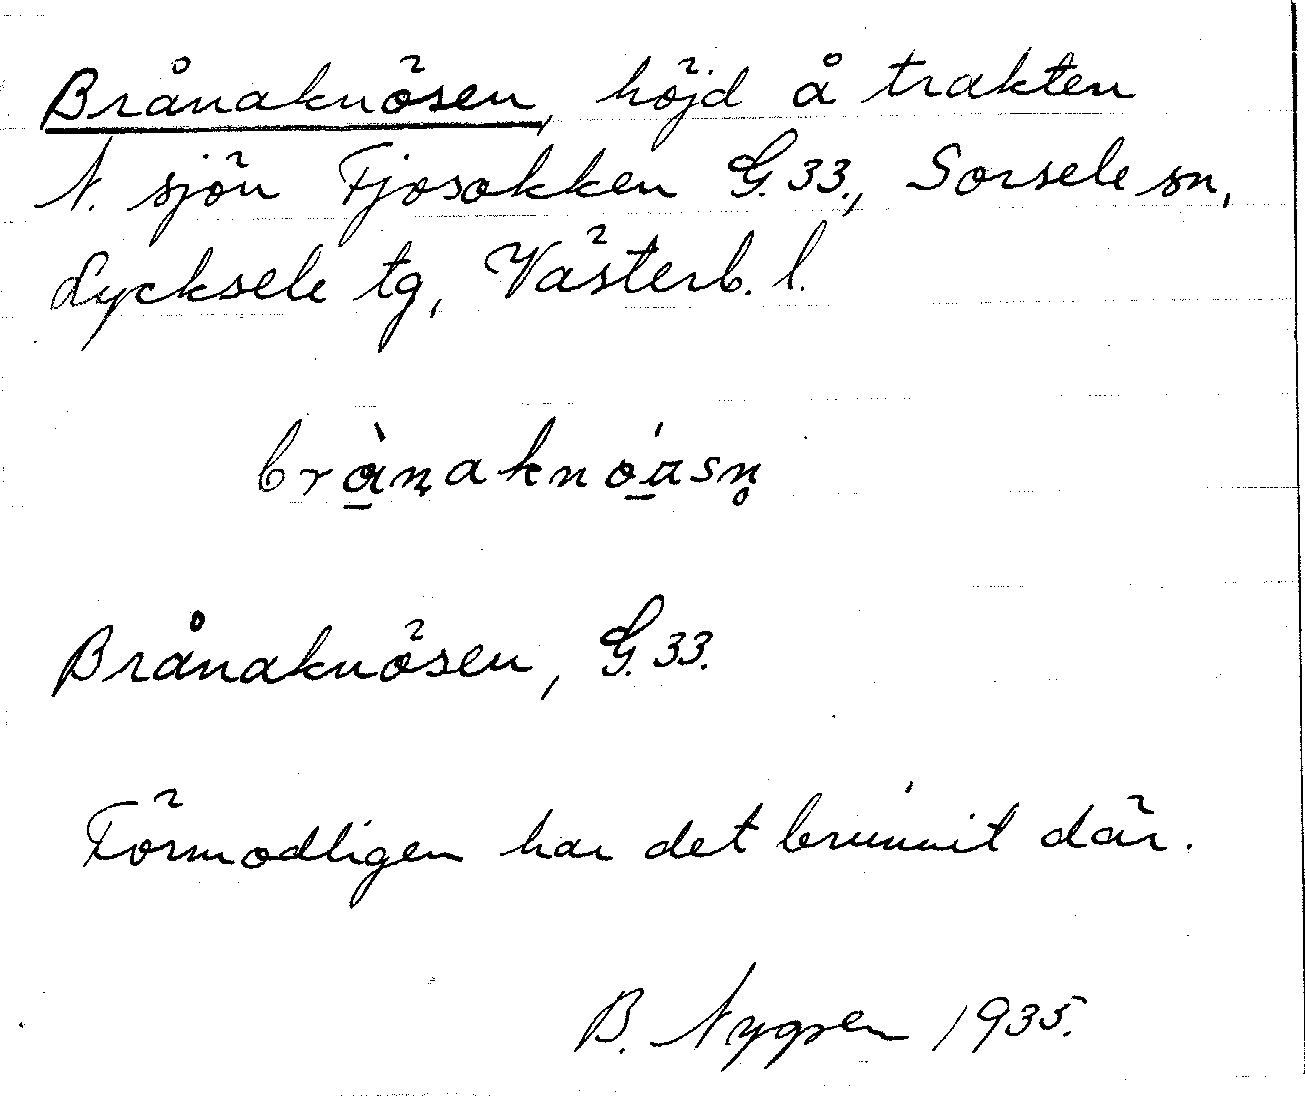 Brånaknösen, höjd å trakten
N. sjön Fjosokken G.33., Sorsele sn,
Lycksele tg, Västerb. l.
brànaknóasn̥
Brånaknösen, G.33.
Förmodligen har det brunnit där.
B. Nygren 1935.